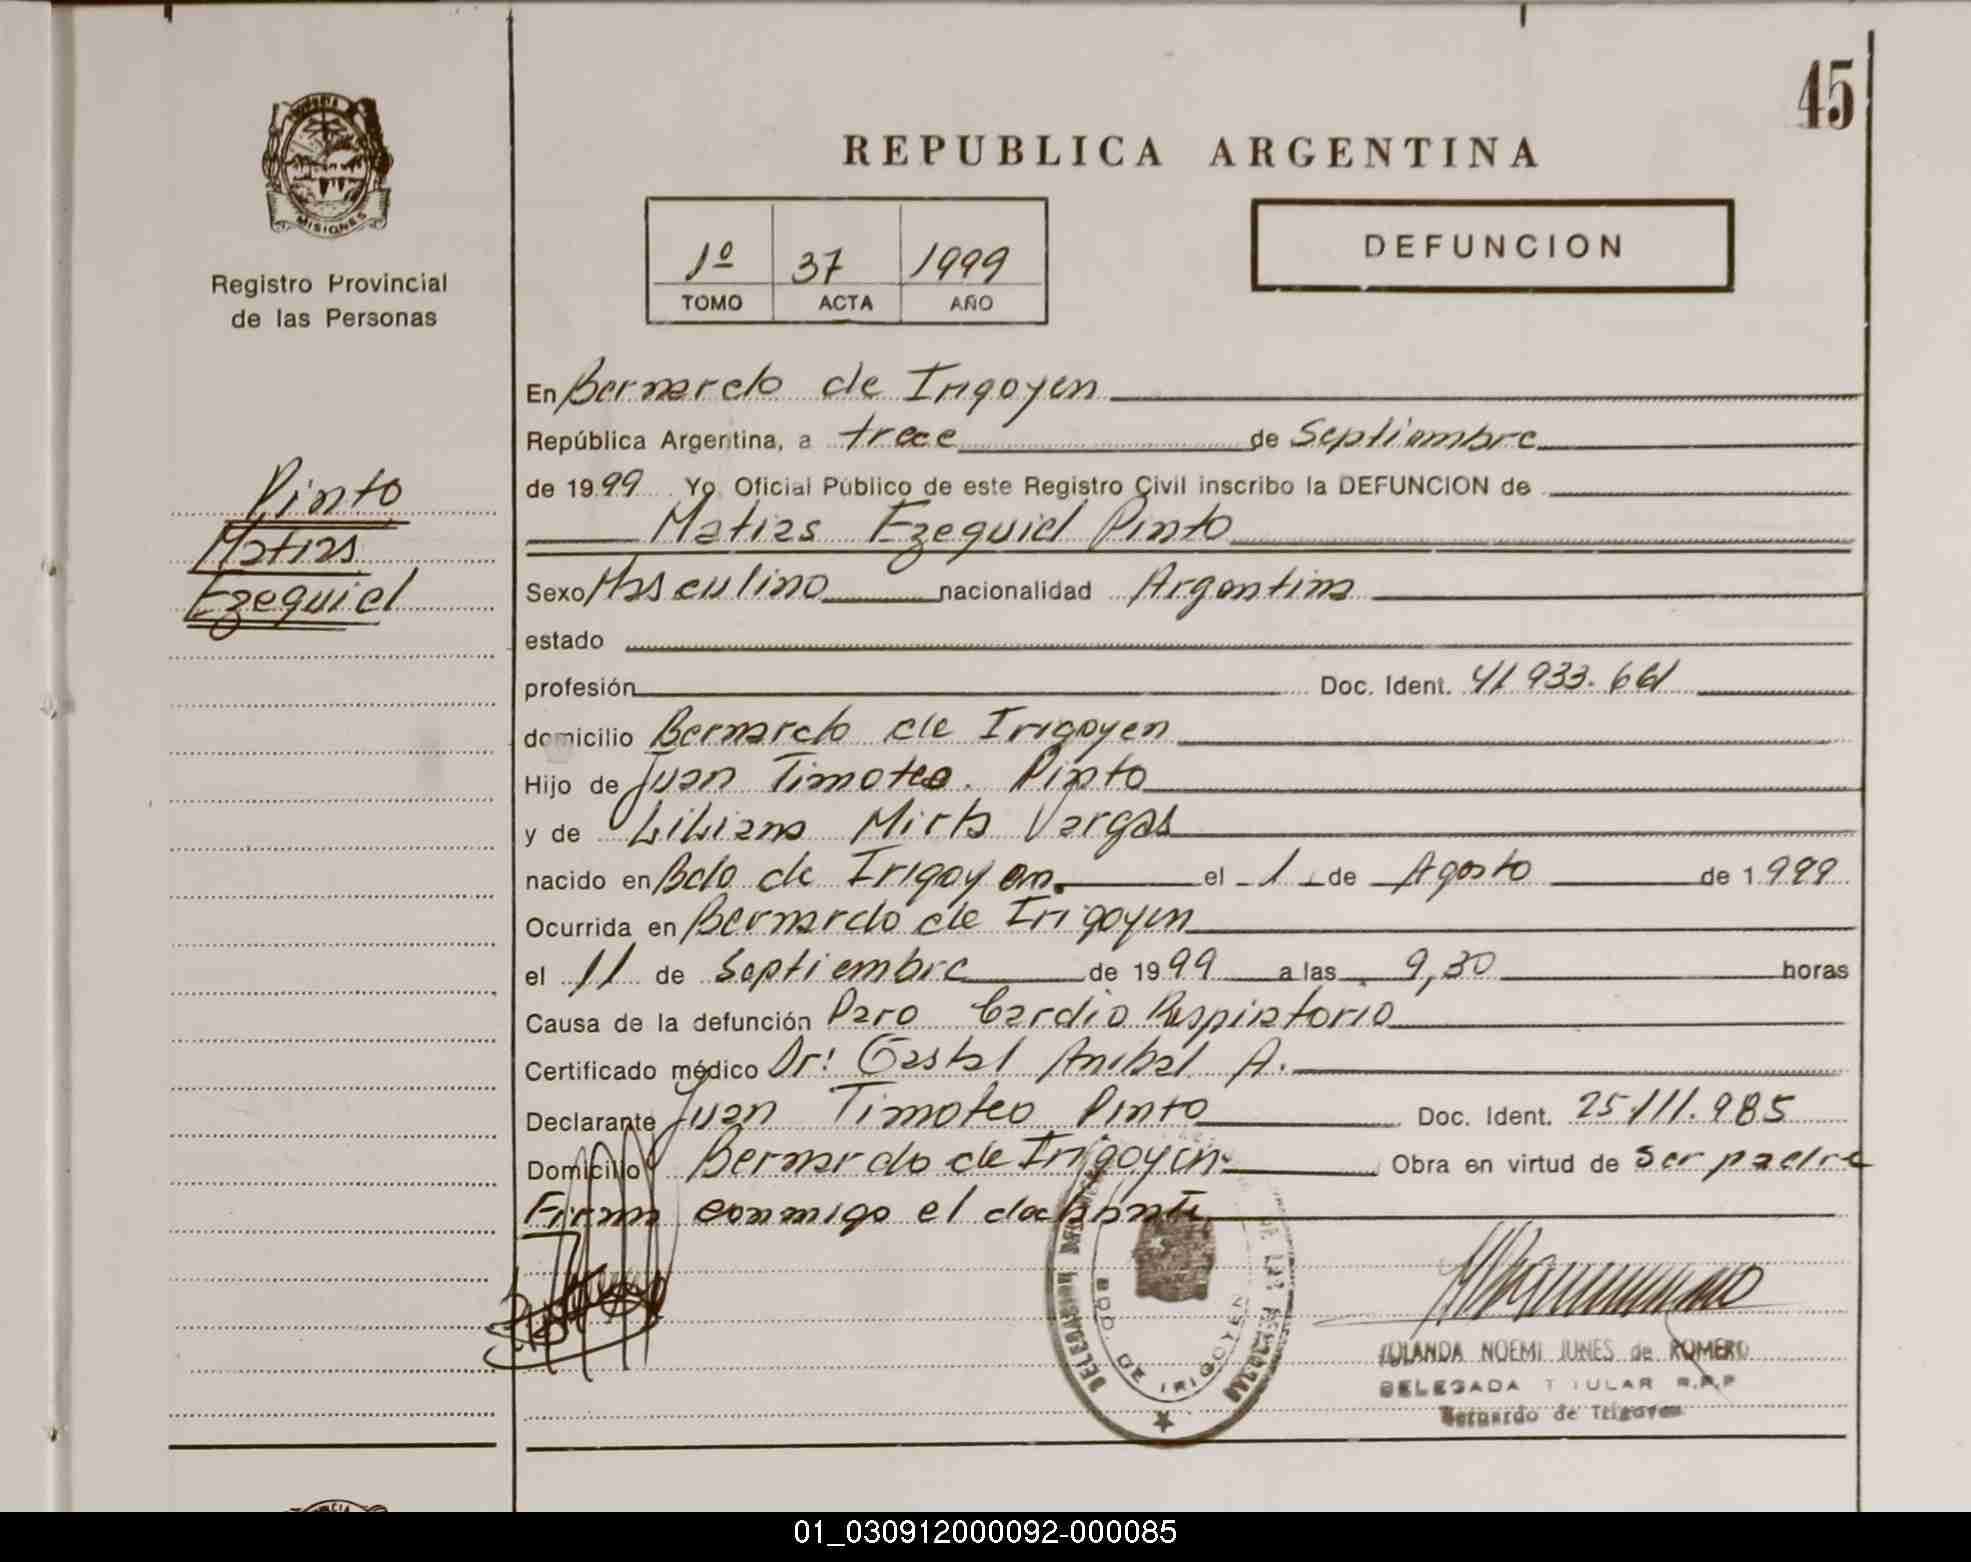 45
REPUBLICA ARGENTINA
MISIONES
Registro Provincial
de las Personas
1º 37 1999
TOMO ACTA AÑO
DEFUNCION
Pinto
Matias
Ezequiel
En Bernardo de Irigoyen
República Argentina, a trece de Septiembre
de 1999 Yo, Oficial Público de este Registro Civil inscribo la DEFUNCION de
Matias Ezequiel Pinto
Sexo Masculino nacionalidad Argentina
estado
profesión Doc. Ident. 41.933.661
domicilio Bernardo de Irigoyen
Hijo de Juan Timoteo Pinto
y de Liliana Mirta Vargas
nacido en Bdo de Irigoyen. el 1 de Agosto de 1999
Ocurrida en Bernardo de Irigoyen
el 11 de Septiembre de 1999 a las 9,30 horas
Causa de la defunción Paro Cardio Respiratorio
Certificado médico Dr: Gastal Anibal A.
Declarante Juan Timoteo Pinto Doc. Ident. 25.111.985
Domicilio Bernardo de Irigoyen Obra en virtud de ser padre
Firma conmigo el declarante
BDO. DE IRIGOYEN
YOLANDA NOEMI JUNES de ROMERO
DELEGADA TITULAR R.P.P
Bernardo de Irigoyen
01_030912000092-000085